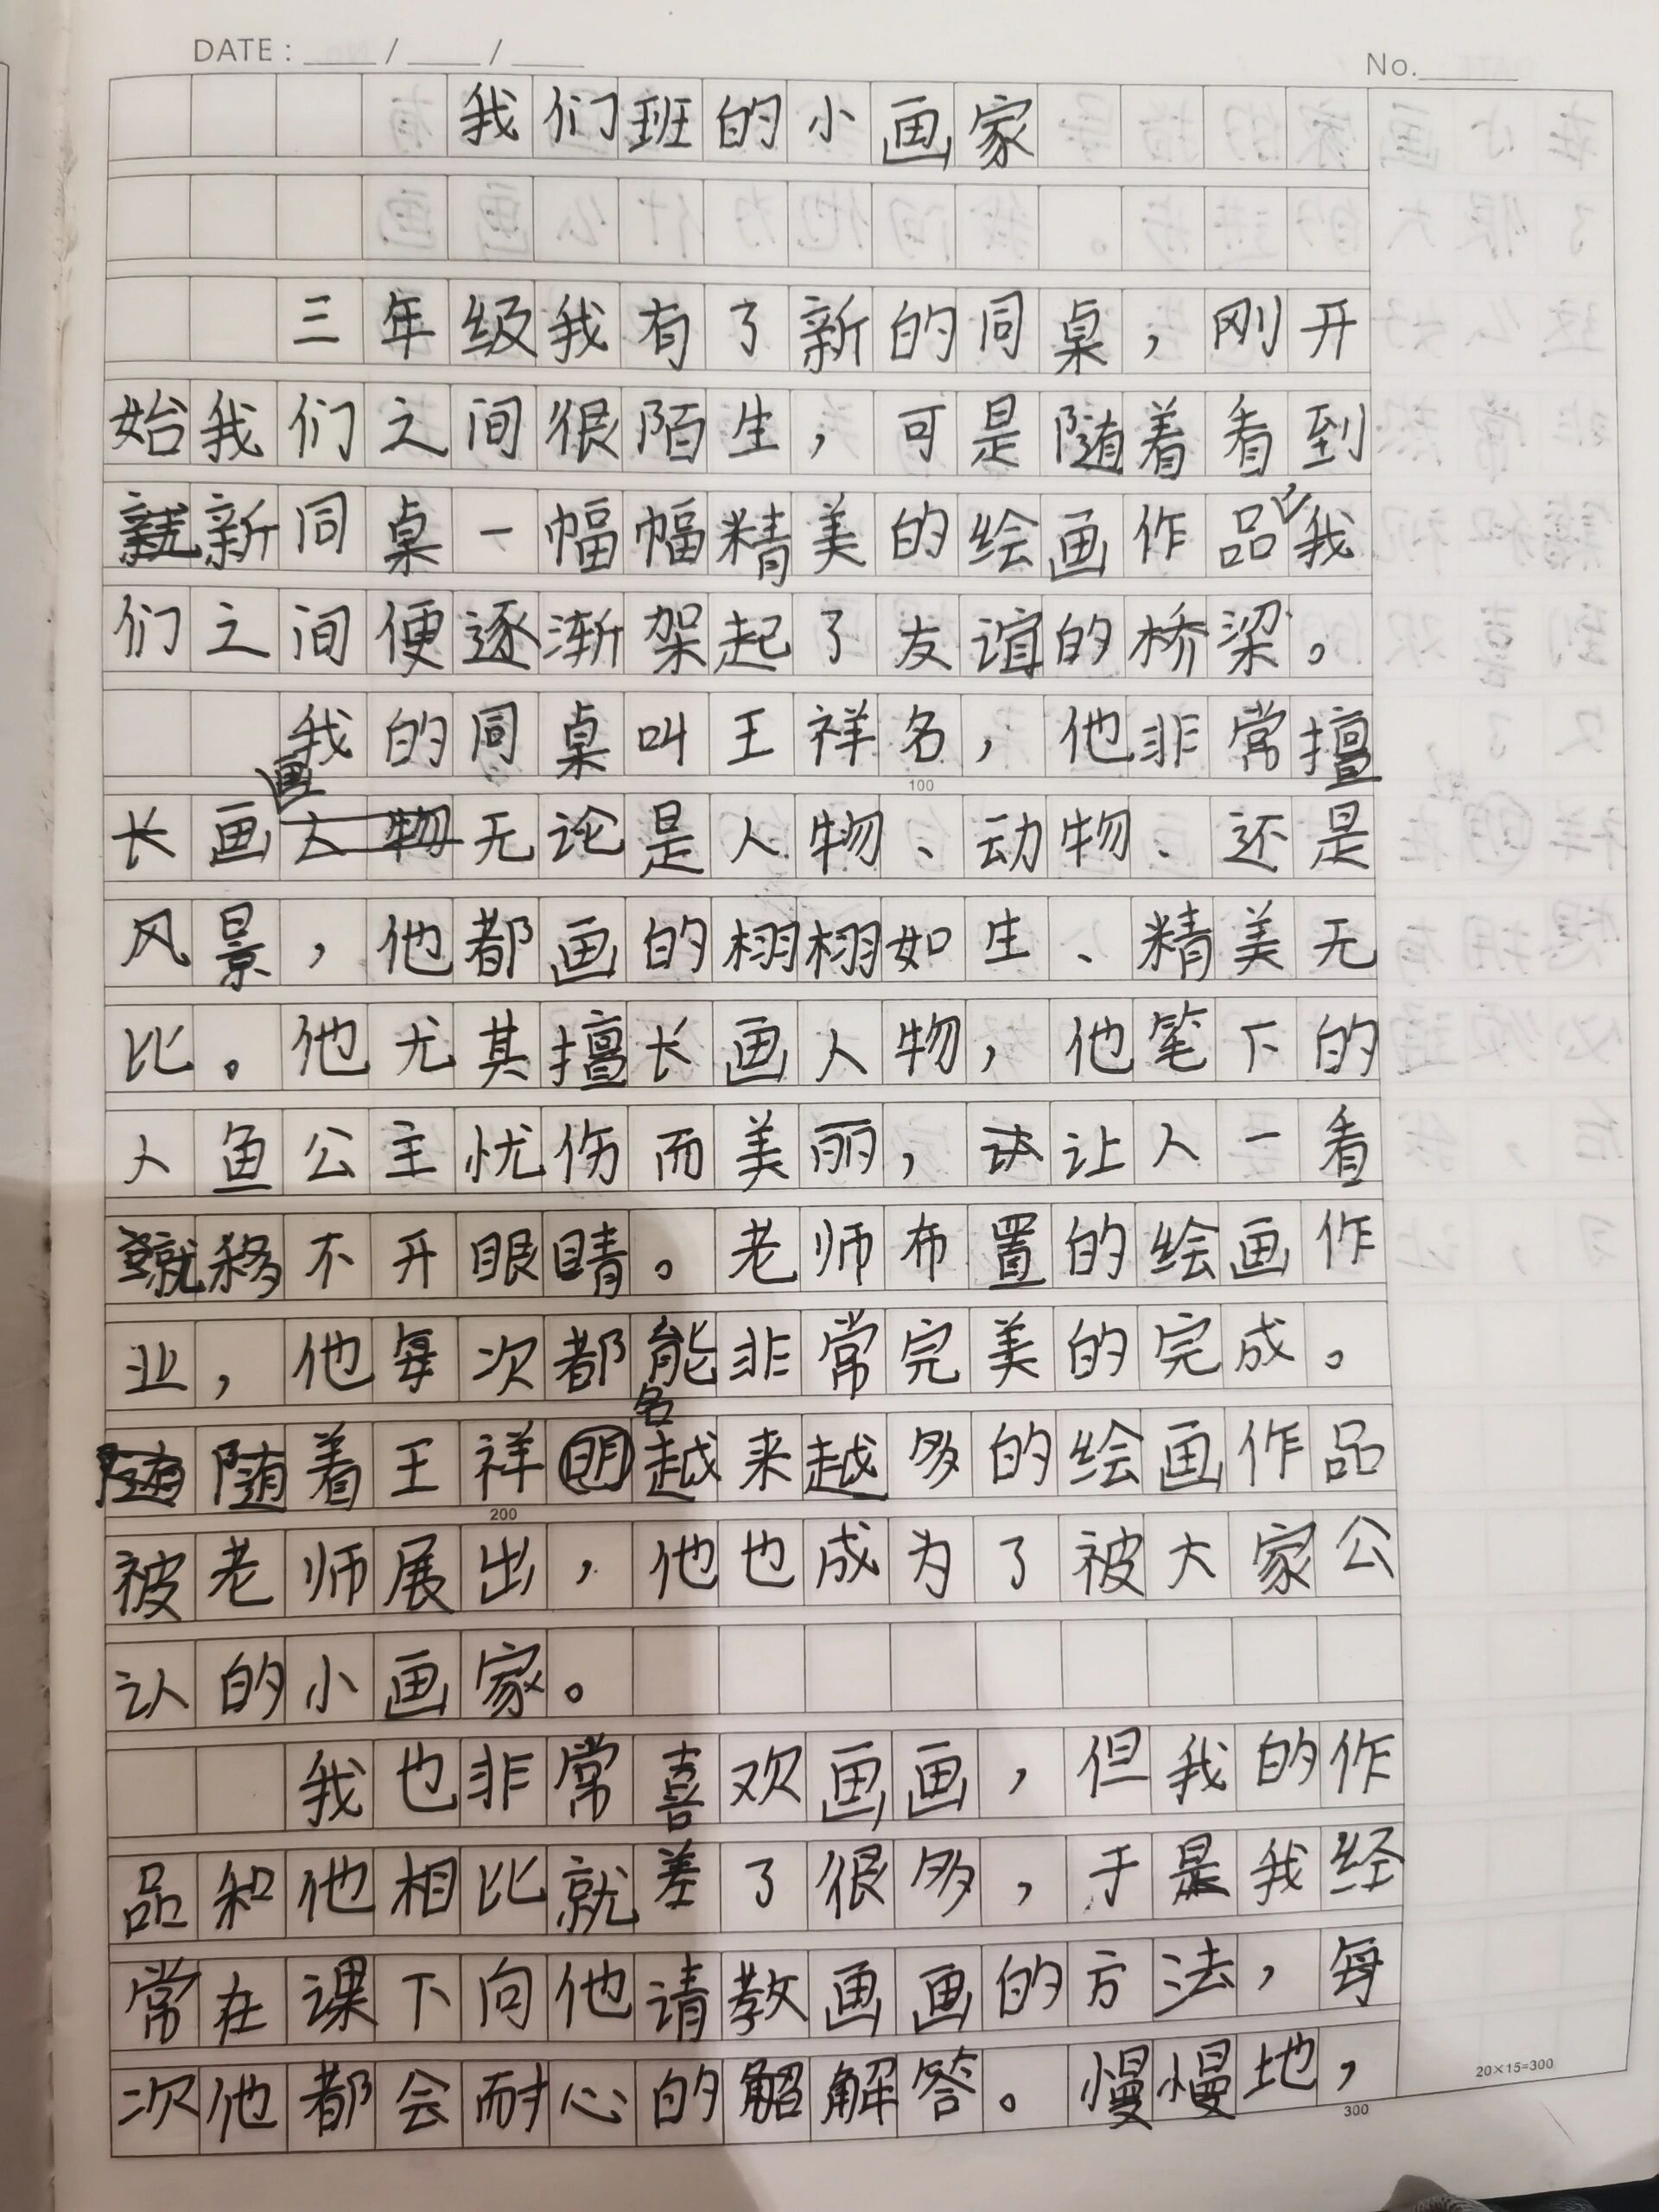 DATE: ___/___/___
No.______
我们班的小画家
三年级我有了新的同桌，刚开
始我们之间很陌生，可是随着看到
新同桌一幅幅精美的绘画作品，我
们之间便逐渐架起了友谊的桥梁。
我的同桌叫王祥名，他非常擅
长画画无论是人物、动物、还是
风景，他都画的栩栩如生、精美无
比。他尤其擅长画人物，他笔下的
人鱼公主忧伤而美丽，让人一看
就移不开眼睛。老师布置的绘画作
业，他每次都能非常完美的完成。
随着王祥名越来越多的绘画作品
被老师展出，他也成为了被大家公
认的小画家。
我也非常喜欢画画，但我的作
品和他相比就差了很多，于是我经
常在课下向他请教画画的方法，每
次他都会耐心的解答。慢慢地，
100
200
300
20×15=300